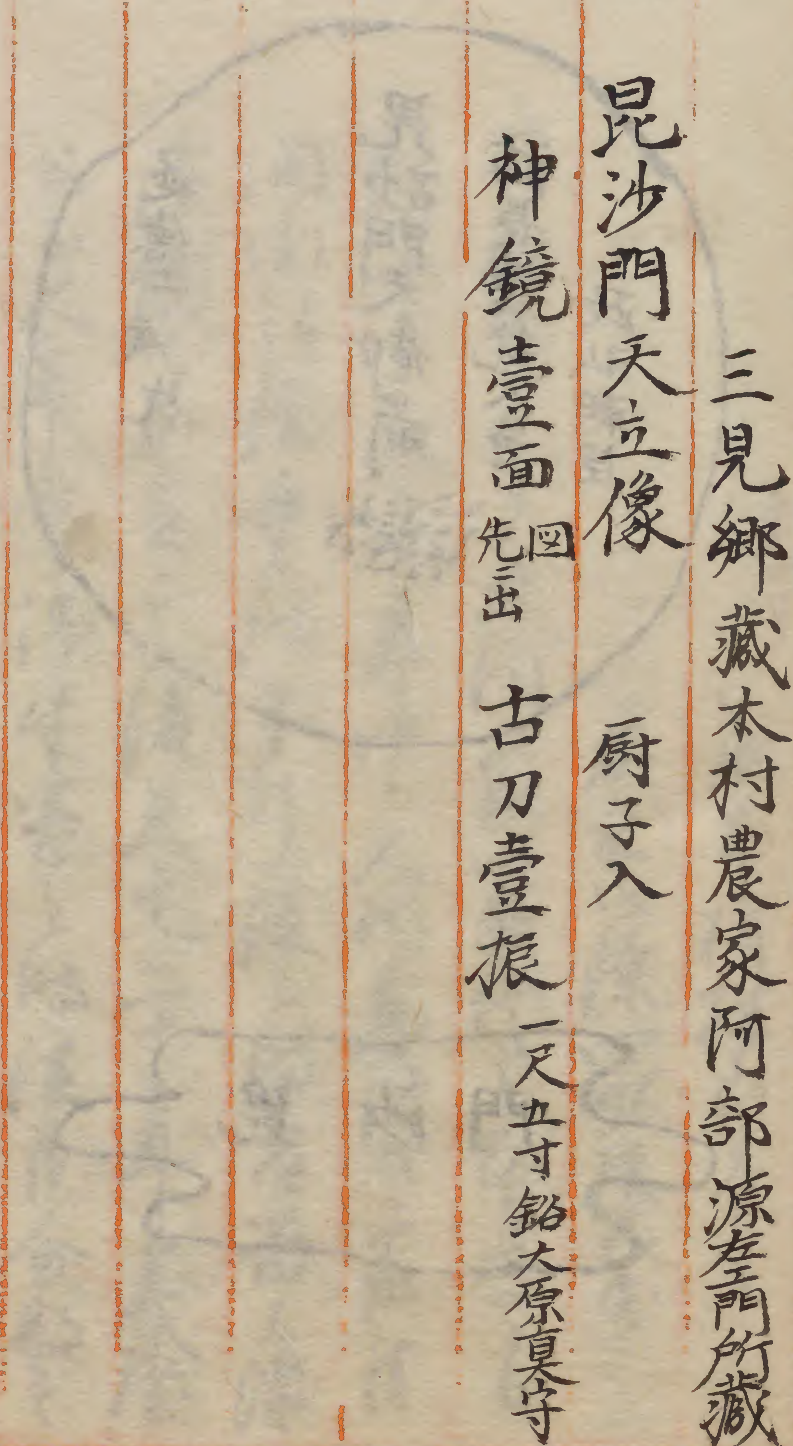 三見郷蔵本村農家阿部源左エ門所蔵
毘沙門天立像　厨子入
神鏡壹面 図先ニ出　古刀壹振 一尺五寸銘大原真守